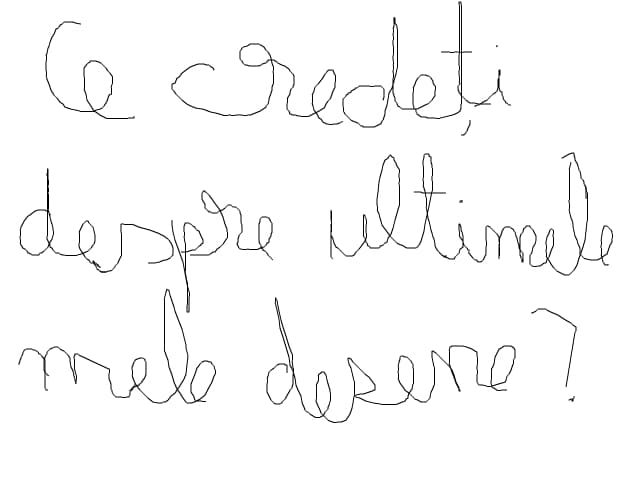 Ce credeți
despre ultimele
mele desene?